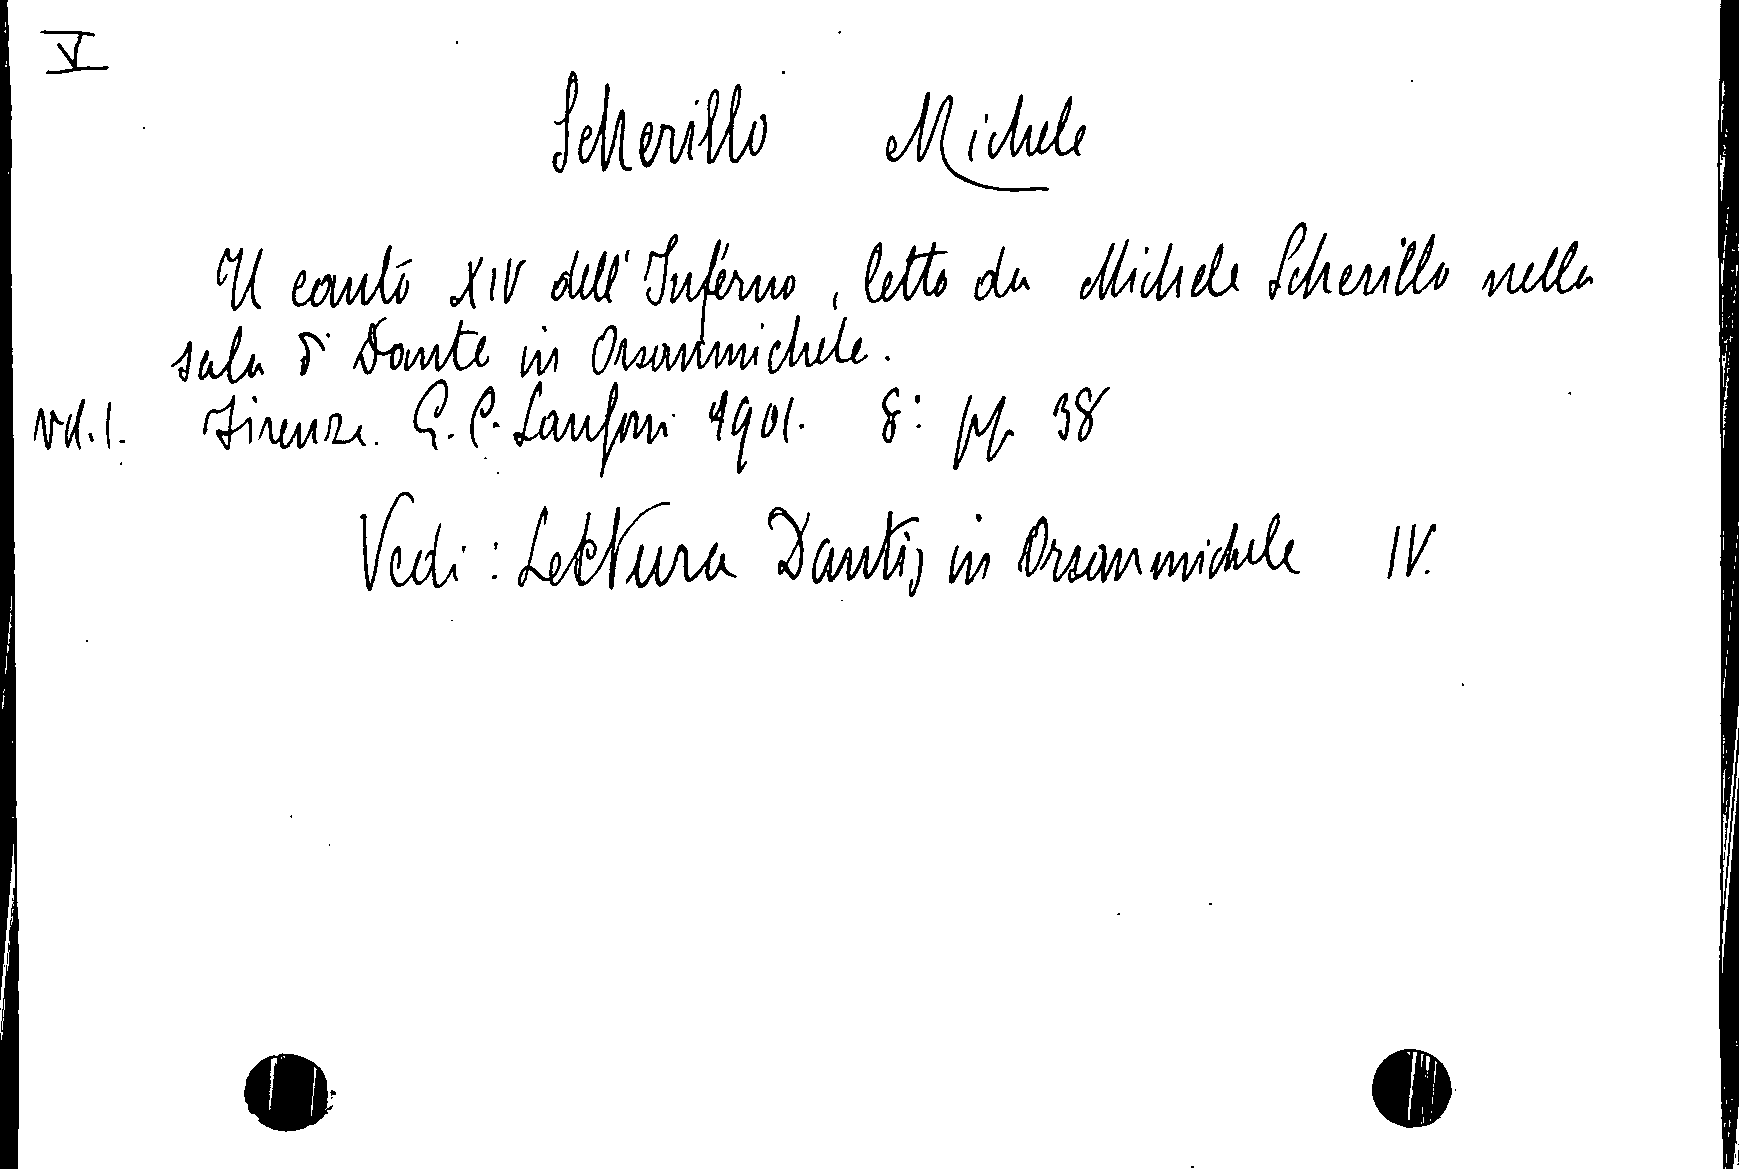 V
Scherillo Michele
Il canto XIV dell'Inferno, letto da Michele Scherillo nella
sala di Dante in Orsanmichele.
Vol. 1. Firenze. G. C. Sansoni 1901. 8: pp. 38
Vedi: Lectura Dantis in Orsanmichele IV.